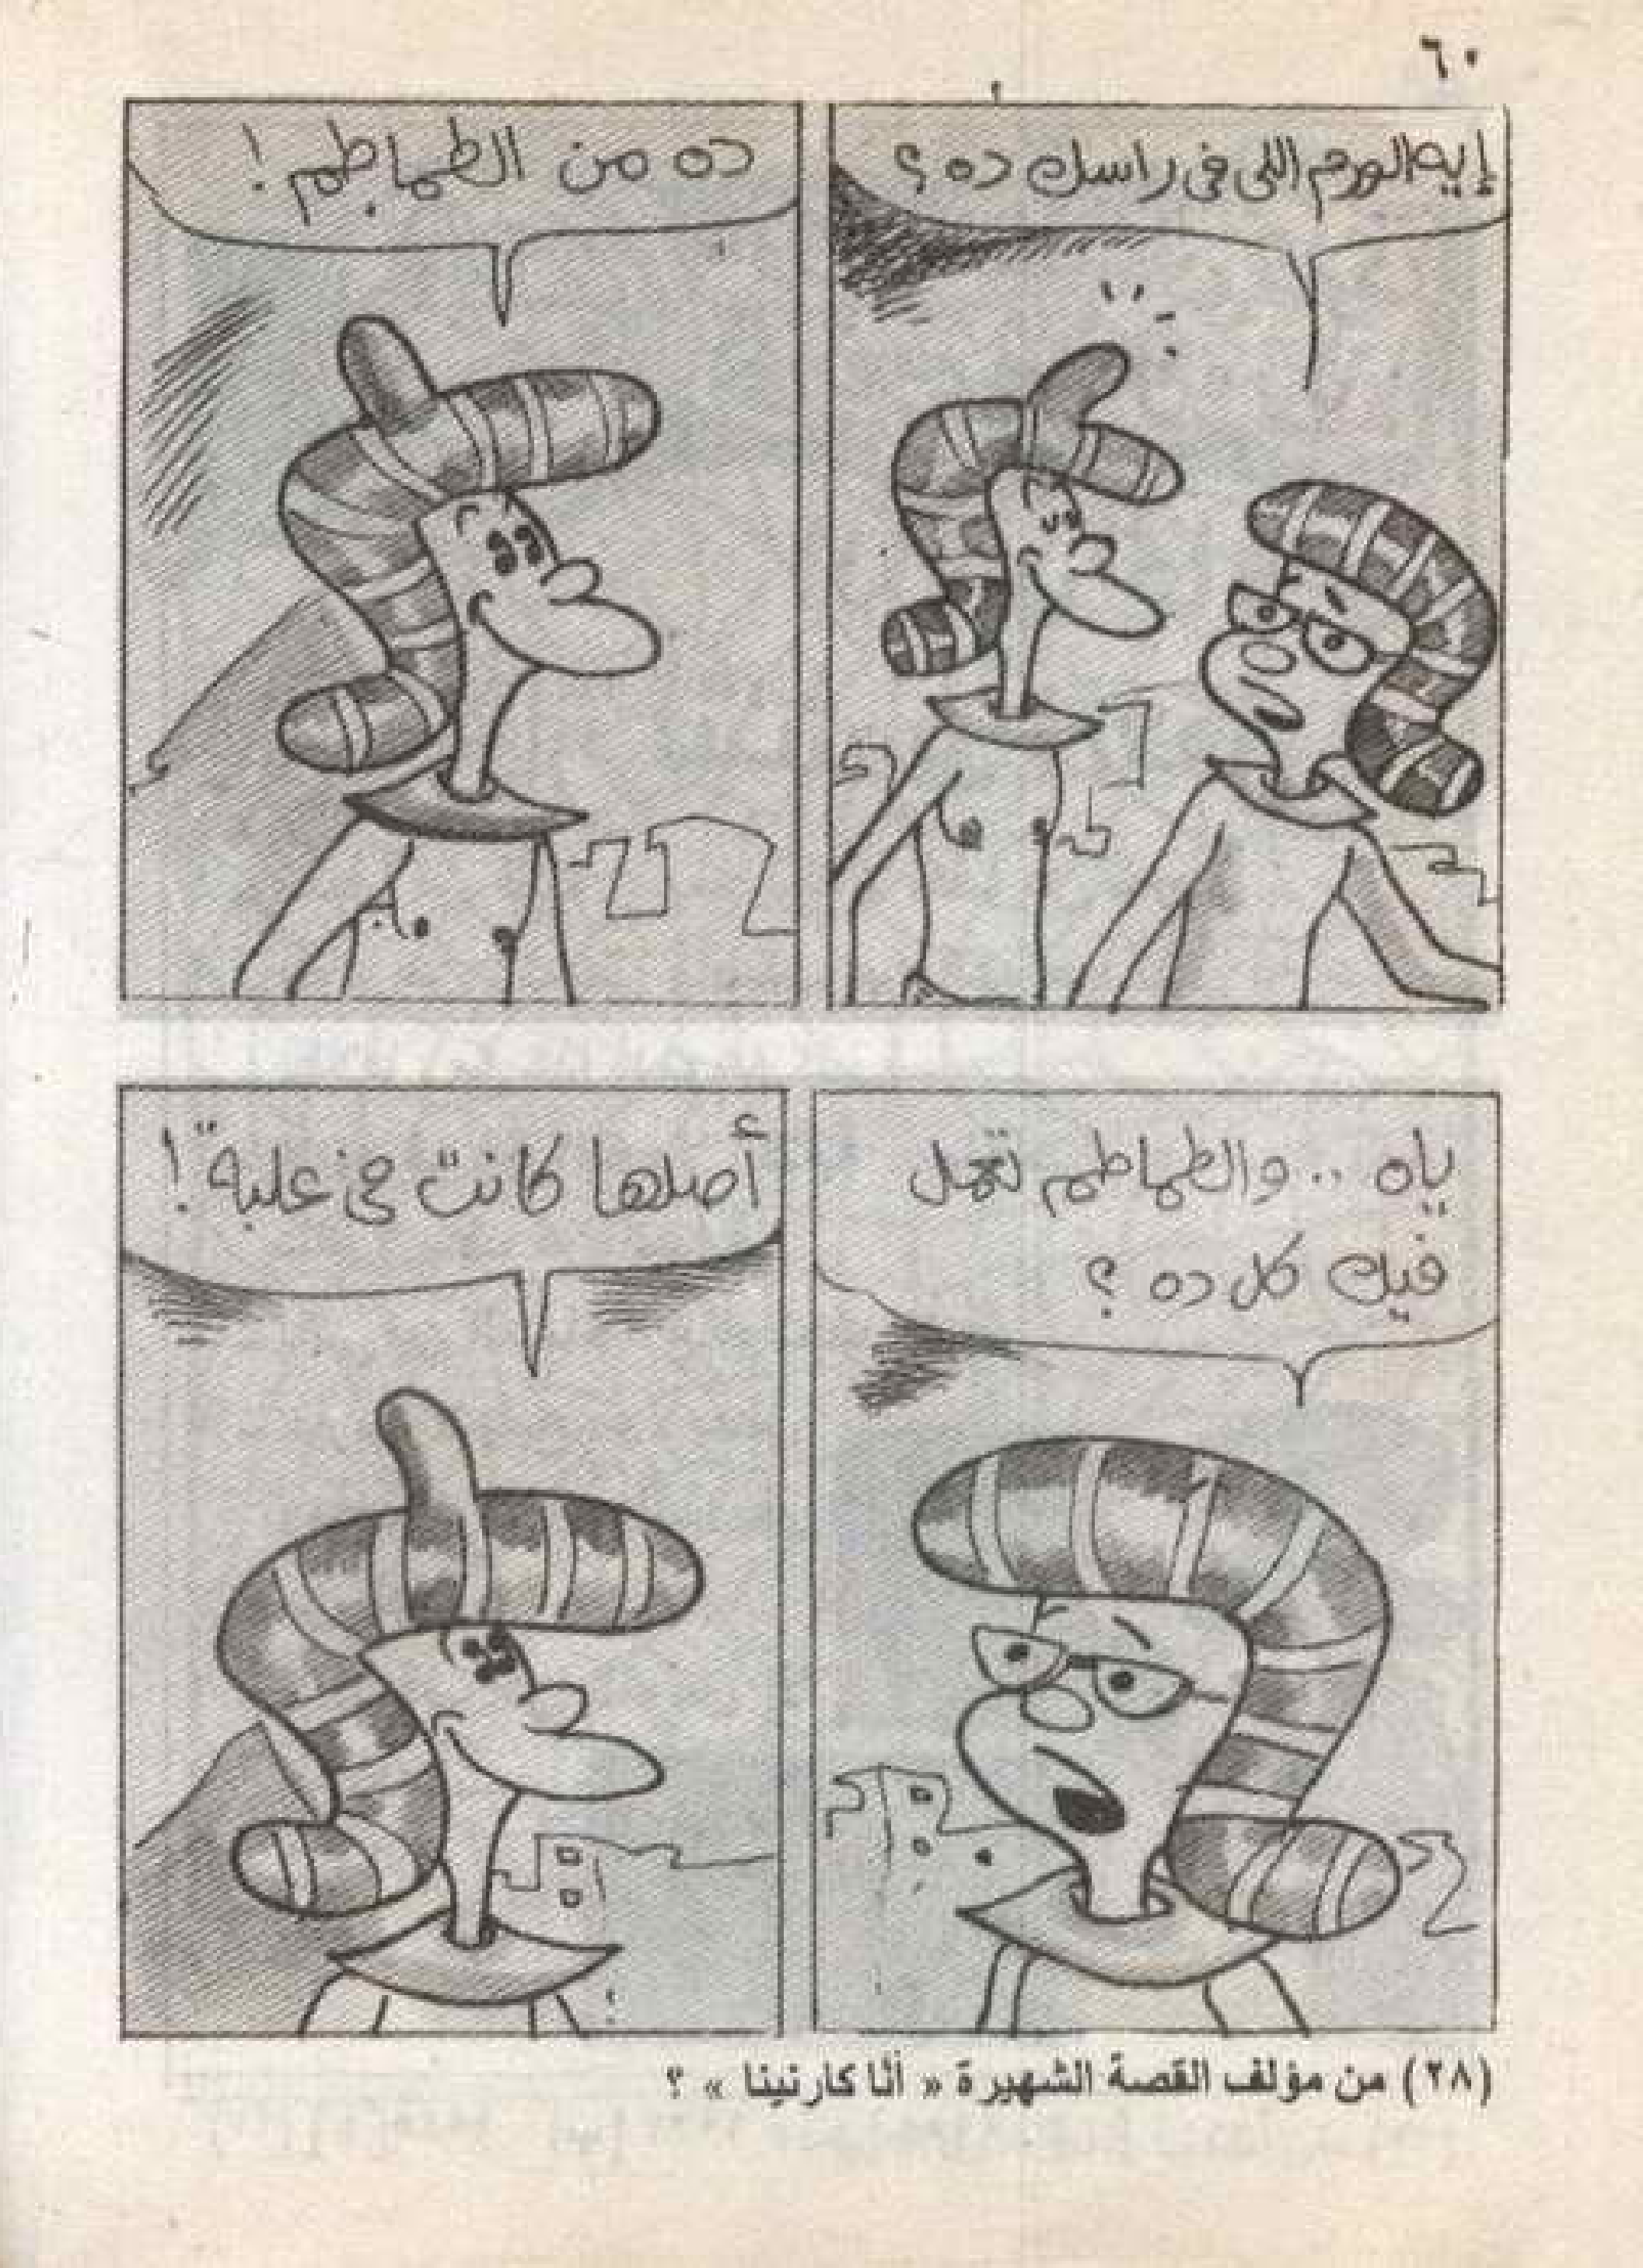 ٦٠
إيه الورم اللى فى راسك ده ؟
ده من الطماطم !
ياه .. والطماطم تعمل
فيك كل ده ؟
أصلها كانت فى علبة !
(٢٨) من مؤلف القصة الشهيرة « أنا كارنينا » ؟